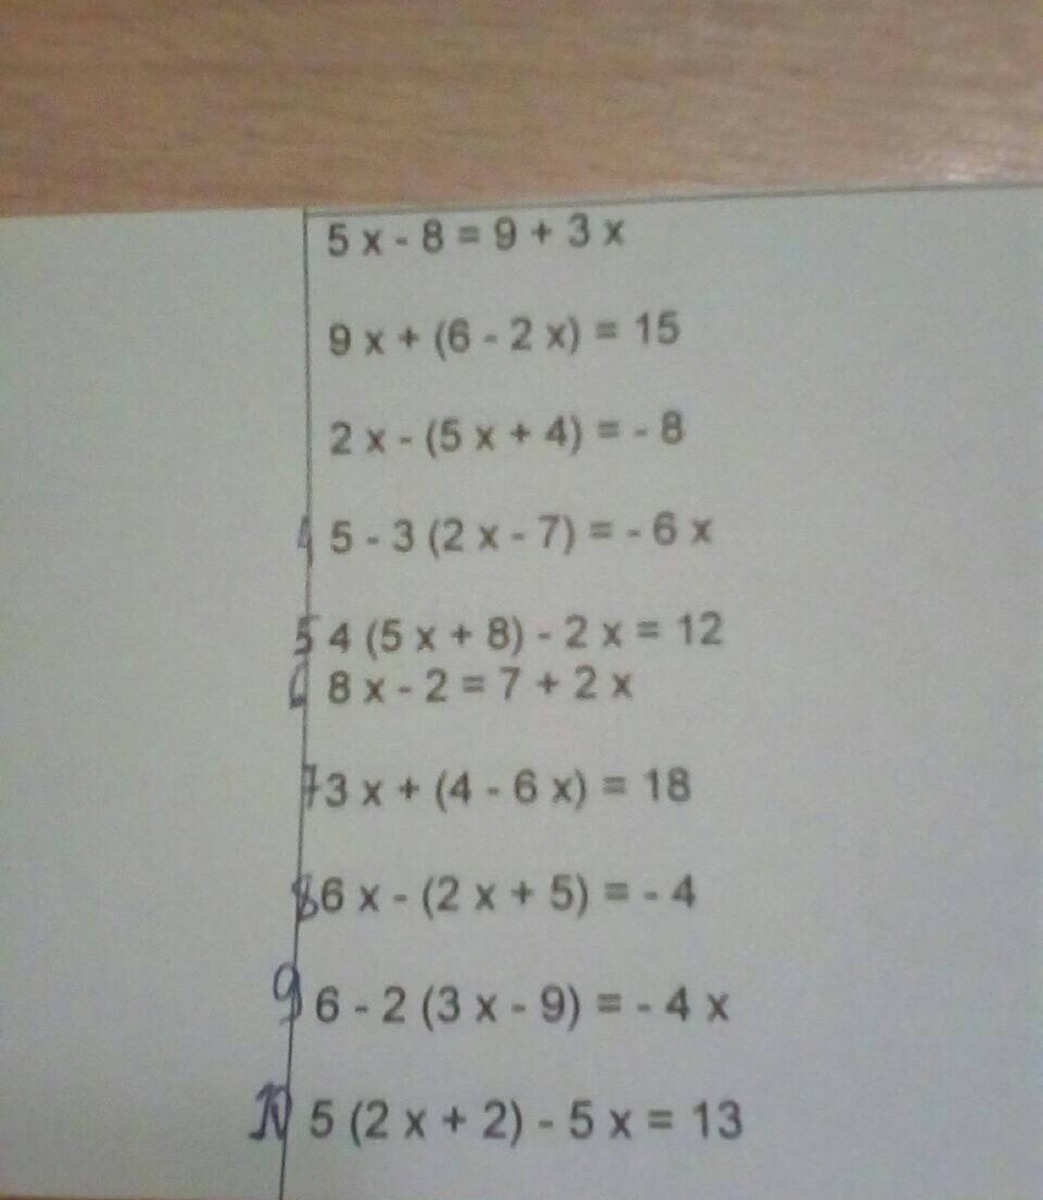 5 x - 8 = 9 + 3 x
9 x + (6 - 2 x) = 15
2 x - (5 x + 4) = - 8
4 5 - 3 (2 x - 7) = - 6 x
5 4 (5 x + 8) - 2 x = 12
6 8 x - 2 = 7 + 2 x
7 3 x + (4 - 6 x) = 18
8 6 x - (2 x + 5) = - 4
9 6 - 2 (3 x - 9) = - 4 x
10 5 (2 x + 2) - 5 x = 13